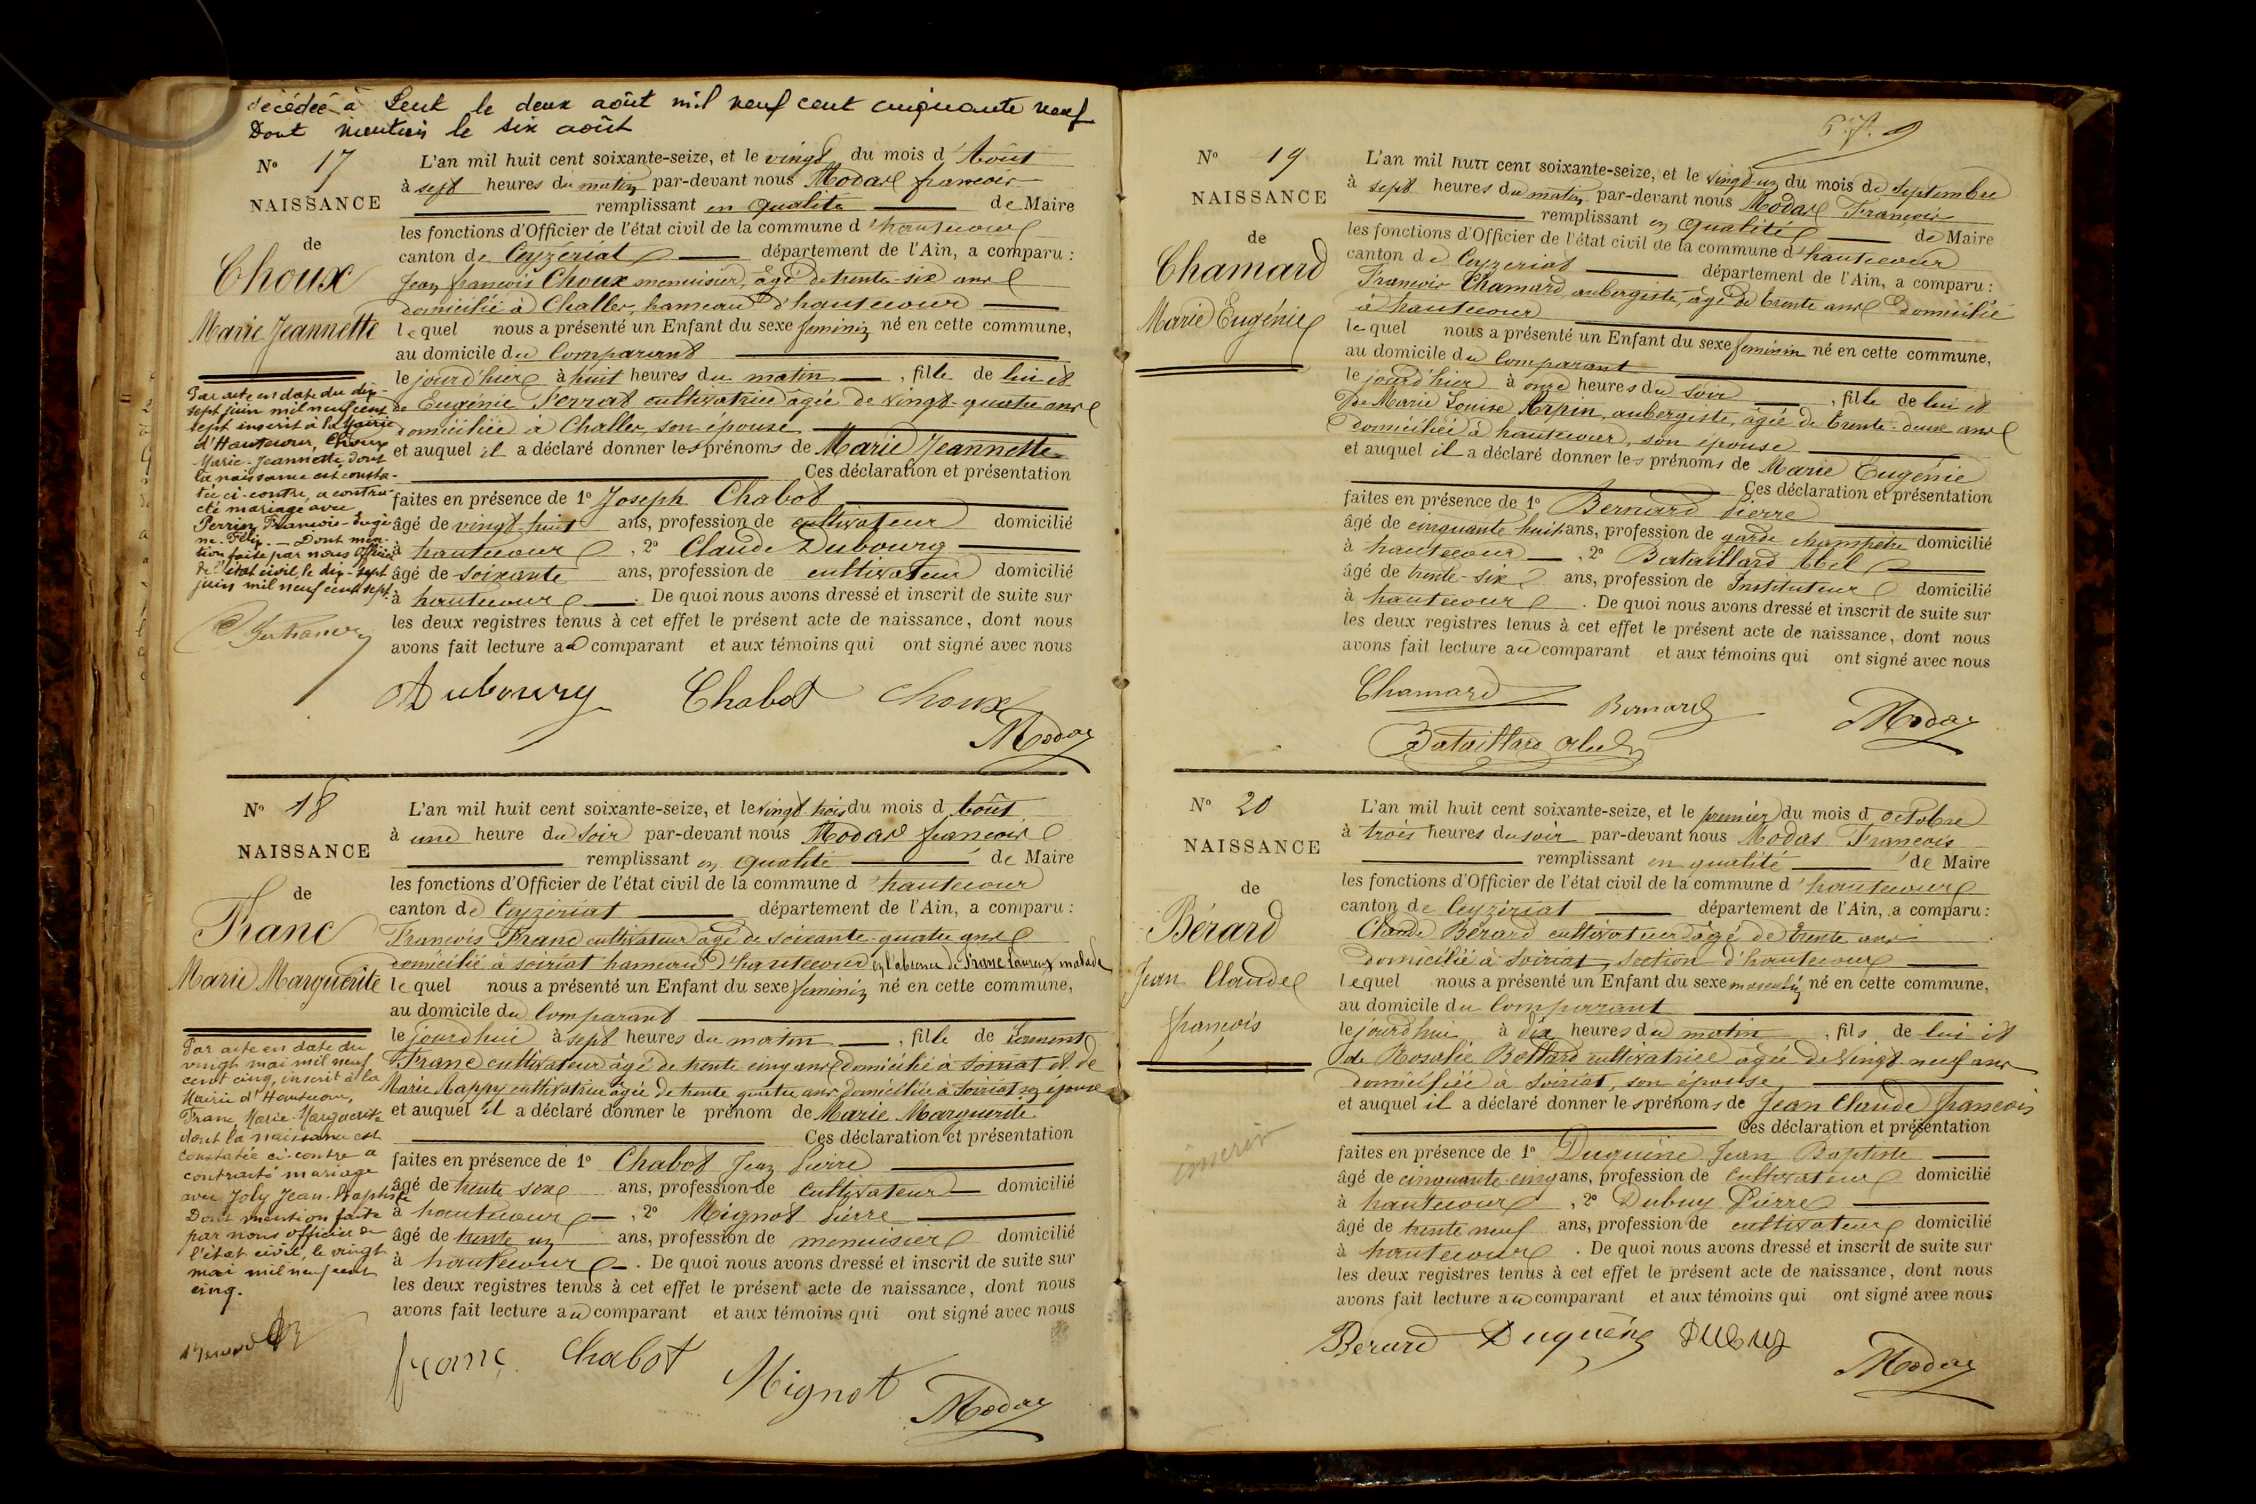 décédée à Seut le deux août mil neuf cent cinquante neuf
Dont mention le six août
N° 17
NAISSANCE
de
Choux
Marie Jeannette
Par acte en date du dix-
sept juin mil neuf cent
sept inscrit à la Mairie
d'Hautecour, Choux
Marie-Jeannette dont
la naissance est consta-
tée ci-contre, a contrac-
té mariage avec
Perrin François-Eugè-
ne-Félix. — Dont men-
tion faite par nous officier
de l'état civil, le dix-sept
juin mil neuf cent sept.
L'an mil huit cent soixante-seize, et le vingt du mois d'Août
à sept heures du matin par-devant nous Modas françois
remplissant en qualité de Maire
les fonctions d'Officier de l'état civil de la commune d'hautecour
canton de Ceyzériat département de l'Ain, a comparu :
Jean françois Choux menuisier, âgé de trente-six ans
domicilié à Challes, hameau d'hautecour
lequel nous a présenté un Enfant du sexe féminin né en cette commune,
au domicile du Comparant
le jourd'hui à huit heures du matin, fille de lui et
de Eugénie Ferrat cultivatrice âgée de vingt-quatre ans
domiciliée à Challes, son épouse
et auquel il a déclaré donner les prénoms de Marie Jeannette
Ces déclaration et présentation
faites en présence de 1° Joseph Chabot
âgé de vingt-huit ans, profession de cultivateur domicilié
à hautecour, 2° Claude Dubourg
âgé de soixante ans, profession de cultivateur domicilié
à hautecour. De quoi nous avons dressé et inscrit de suite sur
les deux registres tenus à cet effet le présent acte de naissance, dont nous
avons fait lecture au comparant et aux témoins qui ont signé avec nous
Dubourg Chabot Choux
Modas
N° 18
NAISSANCE
de
Franc
Marie Marguerite
Par acte en date du
vingt mai mil neuf
cent cinq, inscrit à la
Mairie d'Hautecour,
Franc Marie-Marguerite
dont la naissance est
constatée ci-contre a
contracté mariage
avec Joly Jean-Baptiste
Dont mention faite
par nous officier de
l'état civil, le vingt
mai mil neuf cent
cinq.
L'an mil huit cent soixante-seize, et le vingt trois du mois d'Août
à une heure du soir par-devant nous Modas françois
remplissant en qualité de Maire
les fonctions d'Officier de l'état civil de la commune d'hautecour
canton de Ceyzériat département de l'Ain, a comparu :
François Franc cultivateur âgé de soixante-quatre ans
domicilié à soiriat hameau d'hautecour en l'absence de Franc Laurent malade
lequel nous a présenté un Enfant du sexe féminin né en cette commune,
au domicile du Comparant
le jourd'hui à sept heures du matin, fille de Laurent
Franc cultivateur âgé de trente cinq ans domicilié à Soiriat et de
Marie Nappy cultivatrice âgée de trente quatre ans domiciliée à Soiriat son épouse
et auquel il a déclaré donner le prénom de Marie Marguerite
Ces déclaration et présentation
faites en présence de 1° Chabot Jean Pierre
âgé de trente six ans, profession de cultivateur domicilié
à hautecour, 2° Mignot Pierre
âgé de trente un ans, profession de menuisier domicilié
à hautecour. De quoi nous avons dressé et inscrit de suite sur
les deux registres tenus à cet effet le présent acte de naissance, dont nous
avons fait lecture au comparant et aux témoins qui ont signé avec nous
franc Chabot Mignot Modas
N° 19
NAISSANCE
de
Chamard
Marie Eugénie
L'an mil huit cent soixante-seize, et le vingt-un du mois de Septembre
à sept heures du matin par-devant nous Modas François
remplissant en qualité de Maire
les fonctions d'Officier de l'état civil de la commune d'hautecour
canton de Ceyzeriat département de l'Ain, a comparu :
François Chamard, aubergiste, âgé de trente ans domicilié
à hautecour
lequel nous a présenté un Enfant du sexe féminin né en cette commune,
au domicile du Comparant
le jourd'hier à onze heures du soir, fille de lui et
de Marie Louise Arpin, aubergiste, âgée de trente-deux ans
domiciliée à hautecour, son épouse
et auquel il a déclaré donner les prénoms de Marie Eugénie
Ces déclaration et présentation
faites en présence de 1° Bernard Pierre
âgé de cinquante huit ans, profession de garde champêtre domicilié
à hautecour, 2° Bataillard Abel
âgé de trente-six ans, profession de Instituteur domicilié
à hautecour. De quoi nous avons dressé et inscrit de suite sur
les deux registres tenus à cet effet le présent acte de naissance, dont nous
avons fait lecture au comparant et aux témoins qui ont signé avec nous
Chamard Bernard Modas
Bataillard Abel
N° 20
NAISSANCE
de
Bérard
Jean Claude
françois
L'an mil huit cent soixante-seize, et le premier du mois d'octobre
à trois heures du soir par-devant nous Modas François
remplissant en qualité de Maire
les fonctions d'Officier de l'état civil de la commune d'hautecour
canton de Ceyzériat département de l'Ain, a comparu :
Claude Bérard cultivateur âgé de trente ans
domicilié à Soiriat, section d'hautecour
lequel nous a présenté un Enfant du sexe masculin né en cette commune,
au domicile du Comparant
le jourd'hui à dix heures du matin, fils de lui et
de Rosalie Bottard cultivatrice âgée de vingt neuf ans
domiciliée à Soiriat, son épouse
et auquel il a déclaré donner les prénoms de Jean Claude françois
Ces déclaration et présentation
faites en présence de 1° Duquine Jean Baptiste
âgé de cinquante-cinq ans, profession de cultivateur domicilié
à hautecour, 2° Dubuy Pierre
âgé de trente neuf ans, profession de cultivateur domicilié
à hautecour. De quoi nous avons dressé et inscrit de suite sur
les deux registres tenus à cet effet le présent acte de naissance, dont nous
avons fait lecture au comparant et aux témoins qui ont signé avec nous
Berard Duquéne Dubuy
Modas